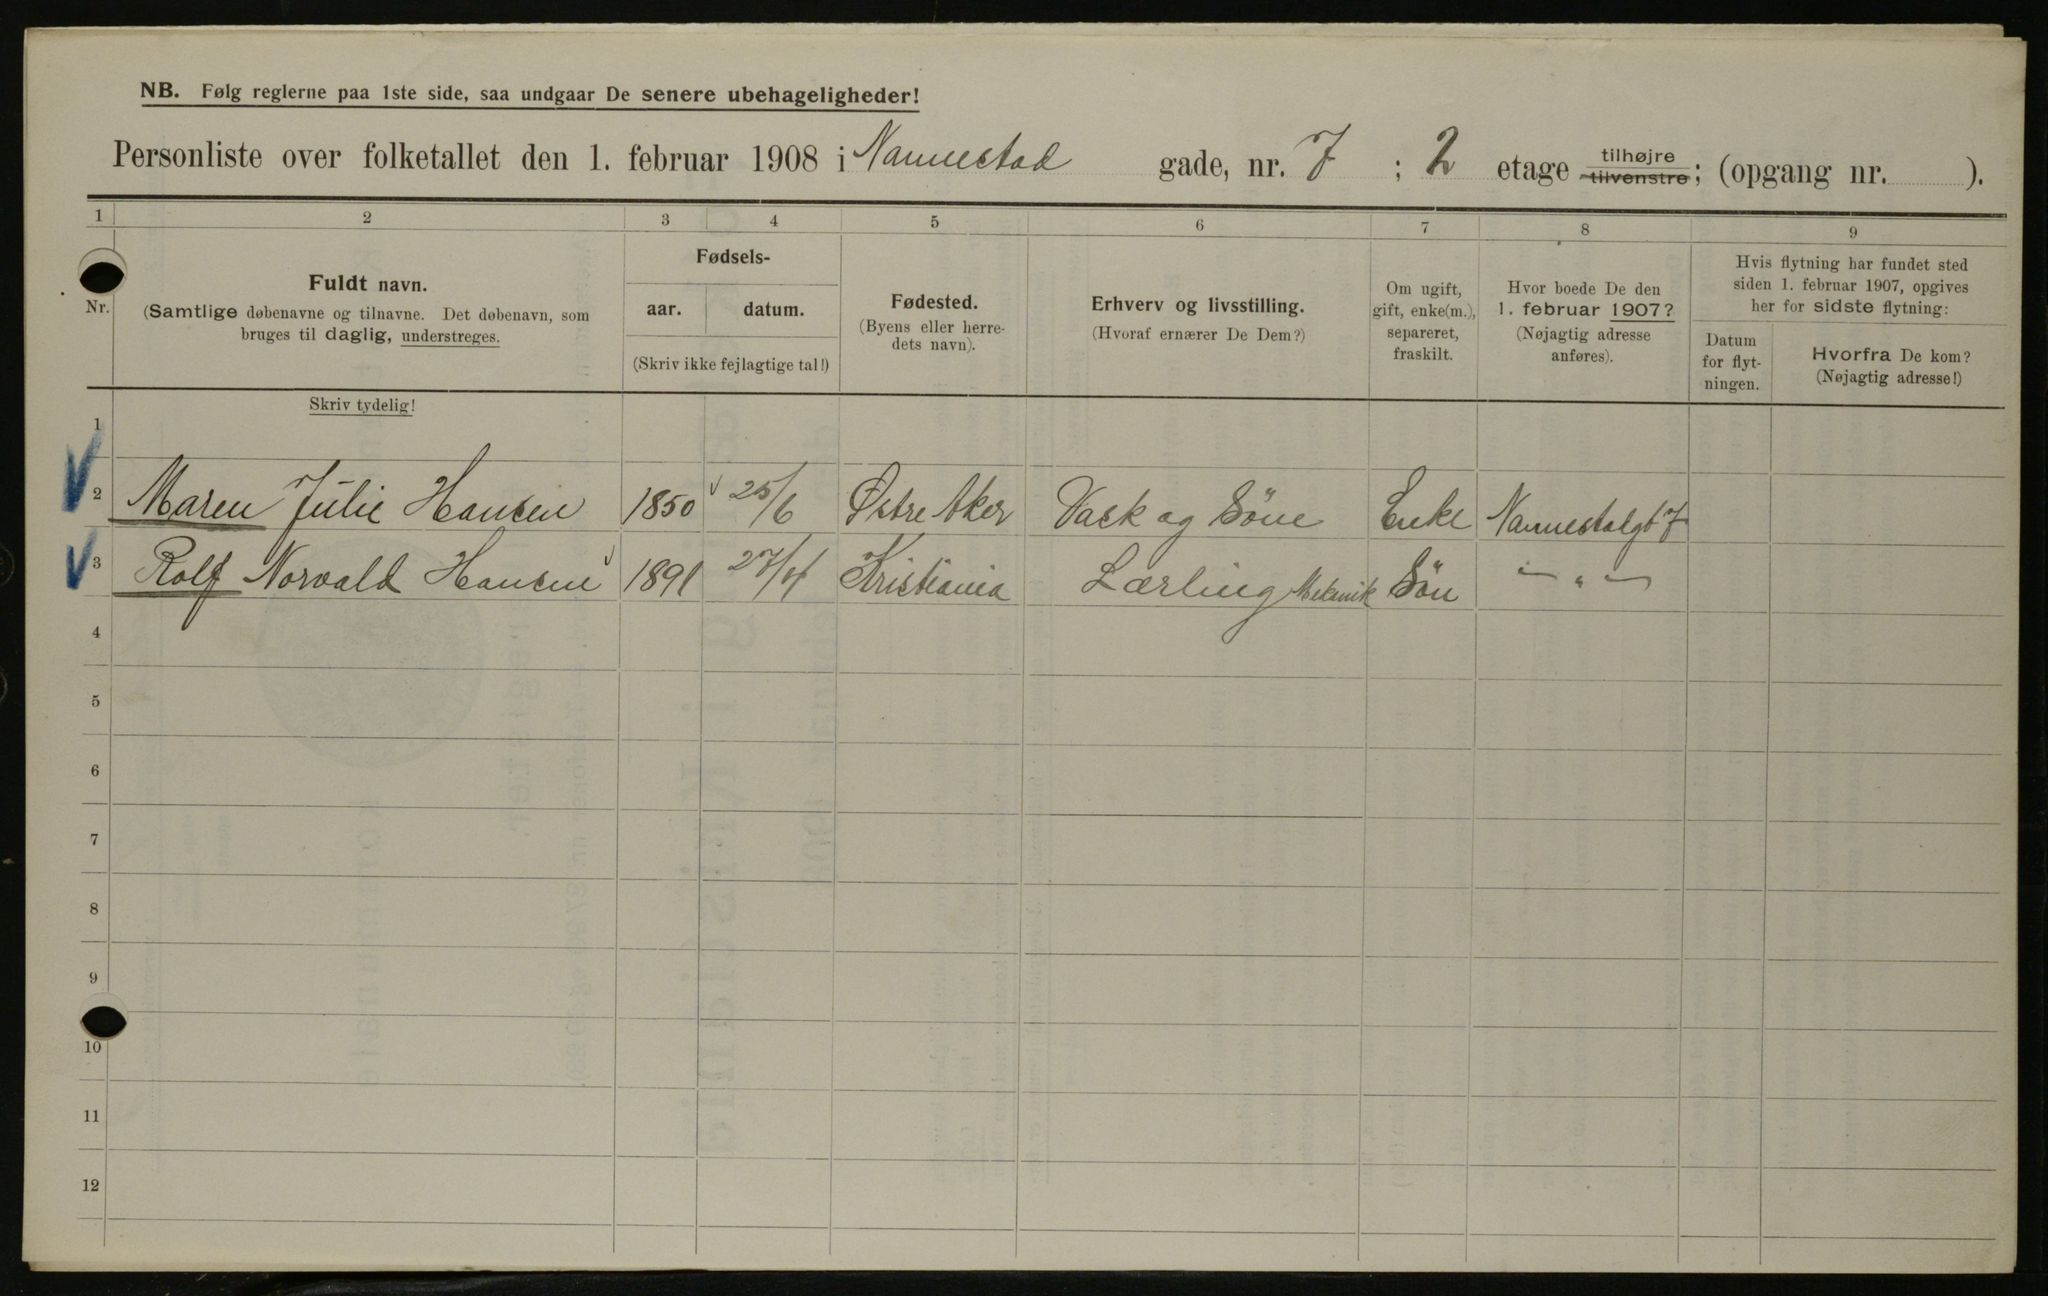 NB. Følg reglerne paa 1ste side, saa undgaar De senere ubehageligheder!
Personliste over folketallet den 1. februar 1908 i Nannestad gade, nr. 7 ; 2 etage tilhøjre tilvenstre; (opgang nr. ).
1 2 3 4 5 6 7 8 9
Nr.
Fuldt navn.
(Samtlige døbenavne og tilnavne. Det døbenavn, som
bruges til daglig, understreges.
Fødsels-
aar. datum.
(Skriv ikke fejlagtige tal!)
Fødested.
(Byens eller herre-
dets navn).
Erhverv og livsstilling.
(Hvoraf ernærer De Dem?)
Om ugift,
gift, enke(m.),
separeret,
fraskilt.
Hvor boede De den
1. februar 1907?
(Nøjagtig adresse
anføres).
Hvis flytning har fundet sted
siden 1. februar 1907, opgives
her for sidste flytning:
Datum
for flyt-
ningen.
Hvorfra De kom?
(Nøjagtig adresse!)
Skriv tydelig!
1
2 Maren Julie Hansen 1850 25/6 Østre Aker Vask og Søne Enke Nannestalgt 7
3 Rolf Norvald Hansen 1891 27/4 Kristiania Lærling Mekanik Søn — " —
4
5
6
7
8
9
10
11
12